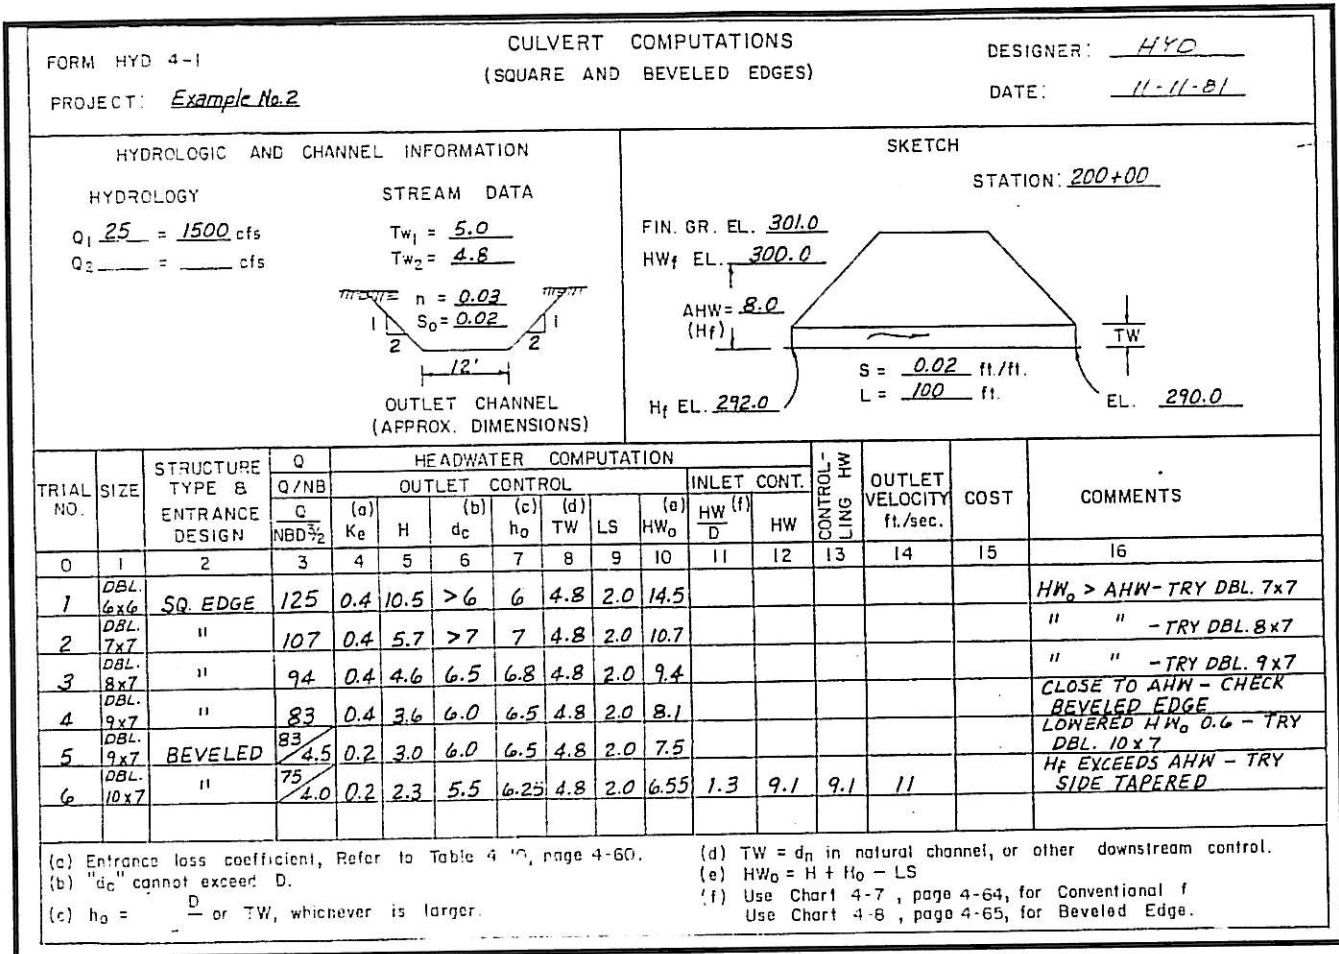 FORM HYD 4-1
CULVERT COMPUTATIONS
(SQUARE AND BEVELED EDGES)
DESIGNER: HYD
PROJECT: Example No. 2
DATE: 11-11-81
HYDROLOGIC AND CHANNEL INFORMATION
HYDROLOGY
STREAM DATA
Q1 25 = 1500 cfs
Q2 ____ = ____ cfs
Tw1 = 5.0
Tw2 = 4.8
n = 0.03
So = 0.02
1
2
1
2
12'
OUTLET CHANNEL
(APPROX. DIMENSIONS)
SKETCH
STATION: 200+00
FIN. GR. EL. 301.0
HWf EL. 300.0
AHW= 8.0
(Hf)
TW
S = 0.02 ft./ft.
L = 100 ft.
Hf EL. 292.0
EL. 290.0
TRIAL NO. SIZE STRUCTURE TYPE & ENTRANCE DESIGN Q Q/NB Q/NBD3/2 HEADWATER COMPUTATION CONTROL-LING HW OUTLET VELOCITY ft./sec. COST COMMENTS
OUTLET CONTROL INLET CONT.
(a) Ke H (b) dc (c) ho (d) TW LS (e) HWo HW/D (f) HW
0 1 2 3 4 5 6 7 8 9 10 11 12 13 14 15 16
1 DBL. 6x6 SQ. EDGE 125 0.4 10.5 >6 6 4.8 2.0 14.5 HWo > AHW- TRY DBL. 7x7
2 DBL. 7x7 " 107 0.4 5.7 >7 7 4.8 2.0 10.7 " " - TRY DBL. 8x7
3 DBL. 8x7 " 94 0.4 4.6 6.5 6.8 4.8 2.0 9.4 " " - TRY DBL. 9x7
4 DBL. 9x7 " 83 0.4 3.6 6.0 6.5 4.8 2.0 8.1 CLOSE TO AHW - CHECK BEVELED EDGE
5 DBL. 9x7 BEVELED 83/4.5 0.2 3.0 6.0 6.5 4.8 2.0 7.5 LOWERED HWo 0.6 - TRY DBL. 10x7
6 DBL. 10x7 " 75/4.0 0.2 2.3 5.5 6.25 4.8 2.0 6.55 1.3 9.1 9.1 11 Hf EXCEEDS AHW - TRY SIDE TAPERED
(c) Entrance loss coefficient, Refer to Table 4 , page 4-60.
(b) "dc" cannot exceed D.
(c) ho = D or TW, whichever is larger.
(d) TW = dn in natural channel, or other downstream control.
(e) HWo = H + Ho - LS
(f) Use Chart 4-7, page 4-64, for Conventional f
Use Chart 4-8, page 4-65, for Beveled Edge.